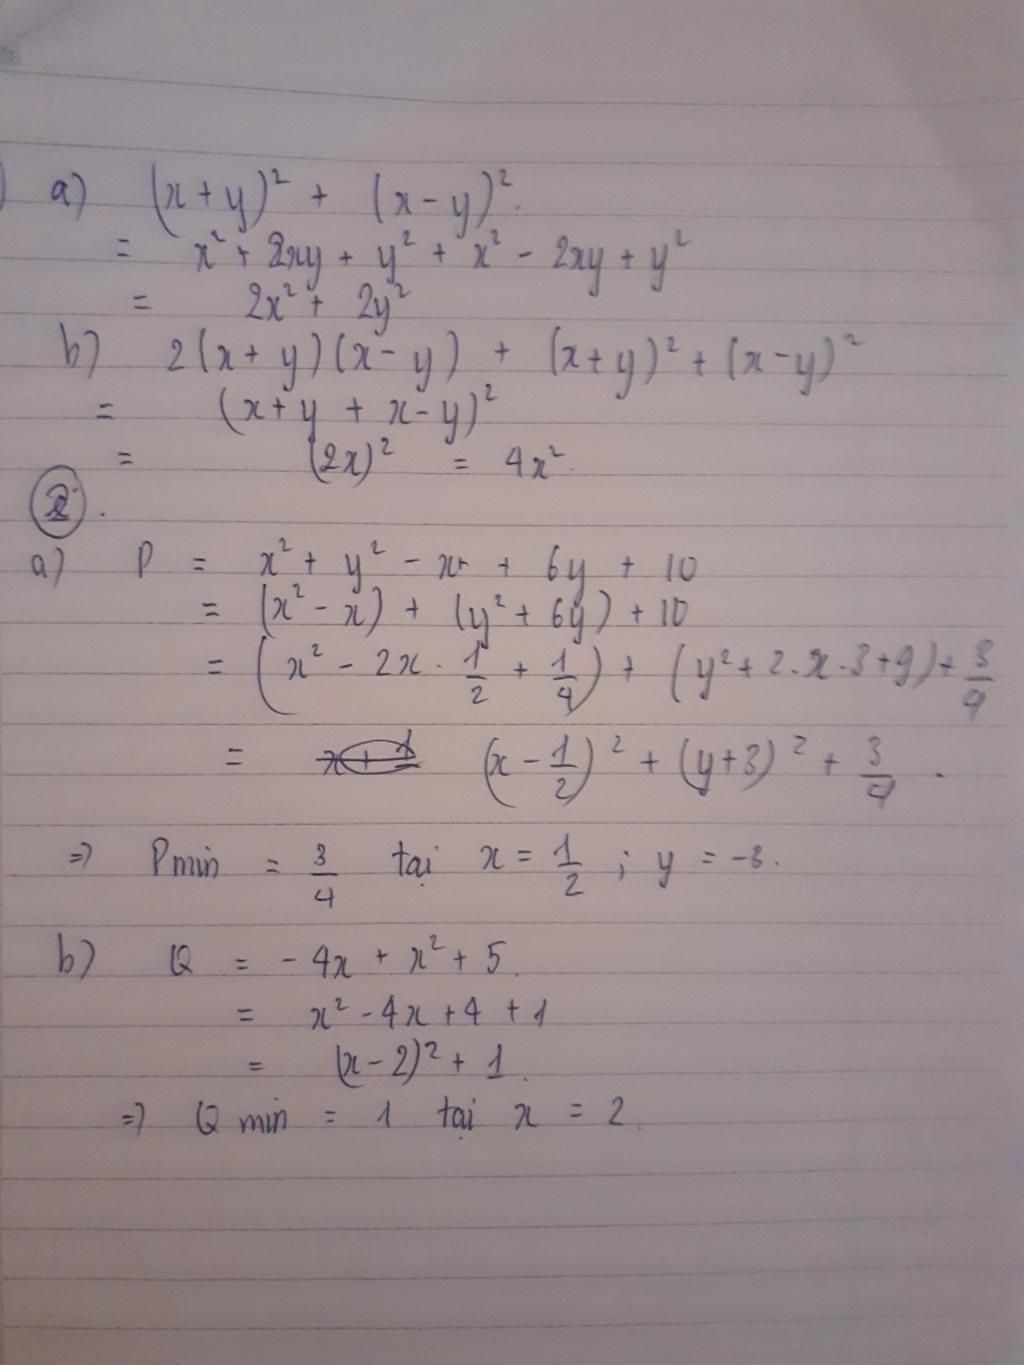 a) (x+y)² + (x-y)².
= x² + 2xy + y² + x² - 2xy + y²
= 2x² + 2y²
b) 2(x+y)(x-y) + (x+y)² + (x-y)²
= (x+y + x-y)²
= (2x)² = 4x².
②.
a) P = x² + y² - x + 6y + 10
= (x² - x) + (y² + 6y) + 10
= (x² - 2x . 1/2 + 1/4) + (y² + 2.x.3+9) + 3/4
= (x - 1/2)² + (y+3)² + 3/4 .
=> Pmin = 3/4 tại x = 1/2 ; y = -3.
b) Q = - 4x + x² + 5.
= x² - 4x + 4 + 1
= (x-2)² + 1.
=> Q min = 1 tại x = 2.